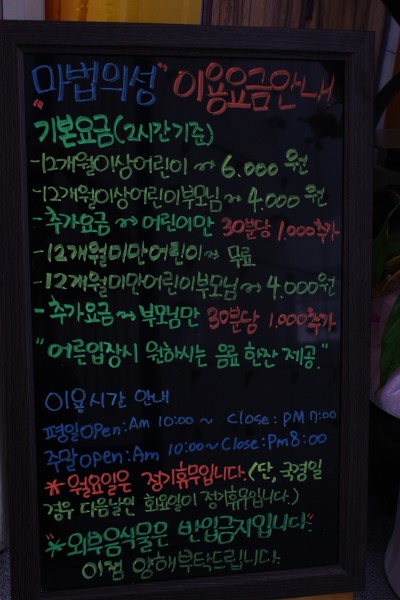 "마법의성" 이용요금안내
기본요금(2시간기준)
-12개월이상어린이 ~> 6.000원
-12개월이상어린이부모님~> 4.000원
-추가요금 ~> 어린이만 30분당 1.000추가
-12개월미만어린이~> 무료
-12개월미만어린이부모님~> 4.000원
-추가요금 ~> 부모님만 30분당 1.000추가
"어른입장시 원하시는 음료 한잔 제공."
이용시간 안내
평일open: Am 10:00 ~ close: PM 7:00
주말open: Am 10:00~close: Pm8:00
* 월요일은 정기휴무입니다.(단, 국경일
경우 다음날엔 화요일이 정기휴무입니다.)
"*외부음식물은 반입금지입니다"
이점 양해부탁드립니다.